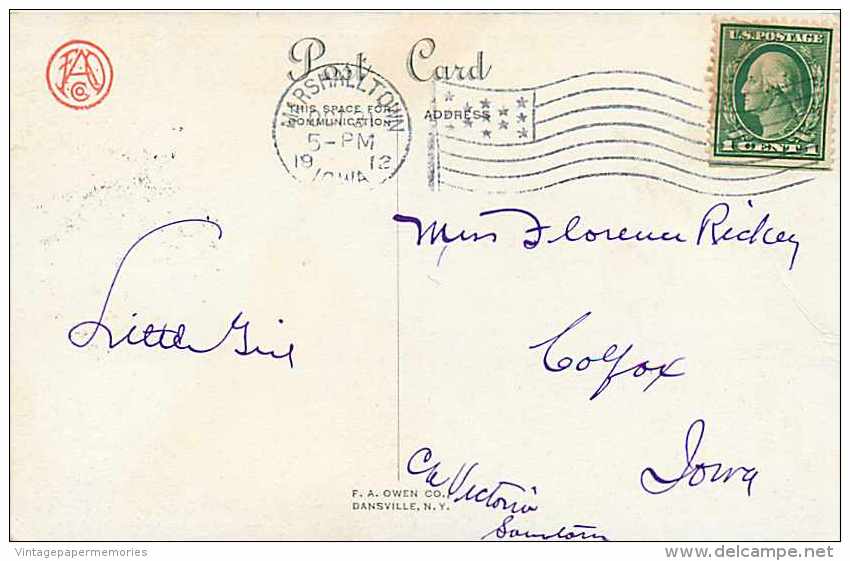 Post Card
MARSHALLTOWN
5-PM
19 12
IOWA
THIS SPACE FOR
COMMUNICATION
ADDRESS
U.S. POSTAGE
1 CENT 1
Miss Florence Rickey
Little Girl
Colfax
Iowa
Victoria
F. A. OWEN CO.,
DANSVILLE, N.Y.
Vintagepapermemories
delcampe.net